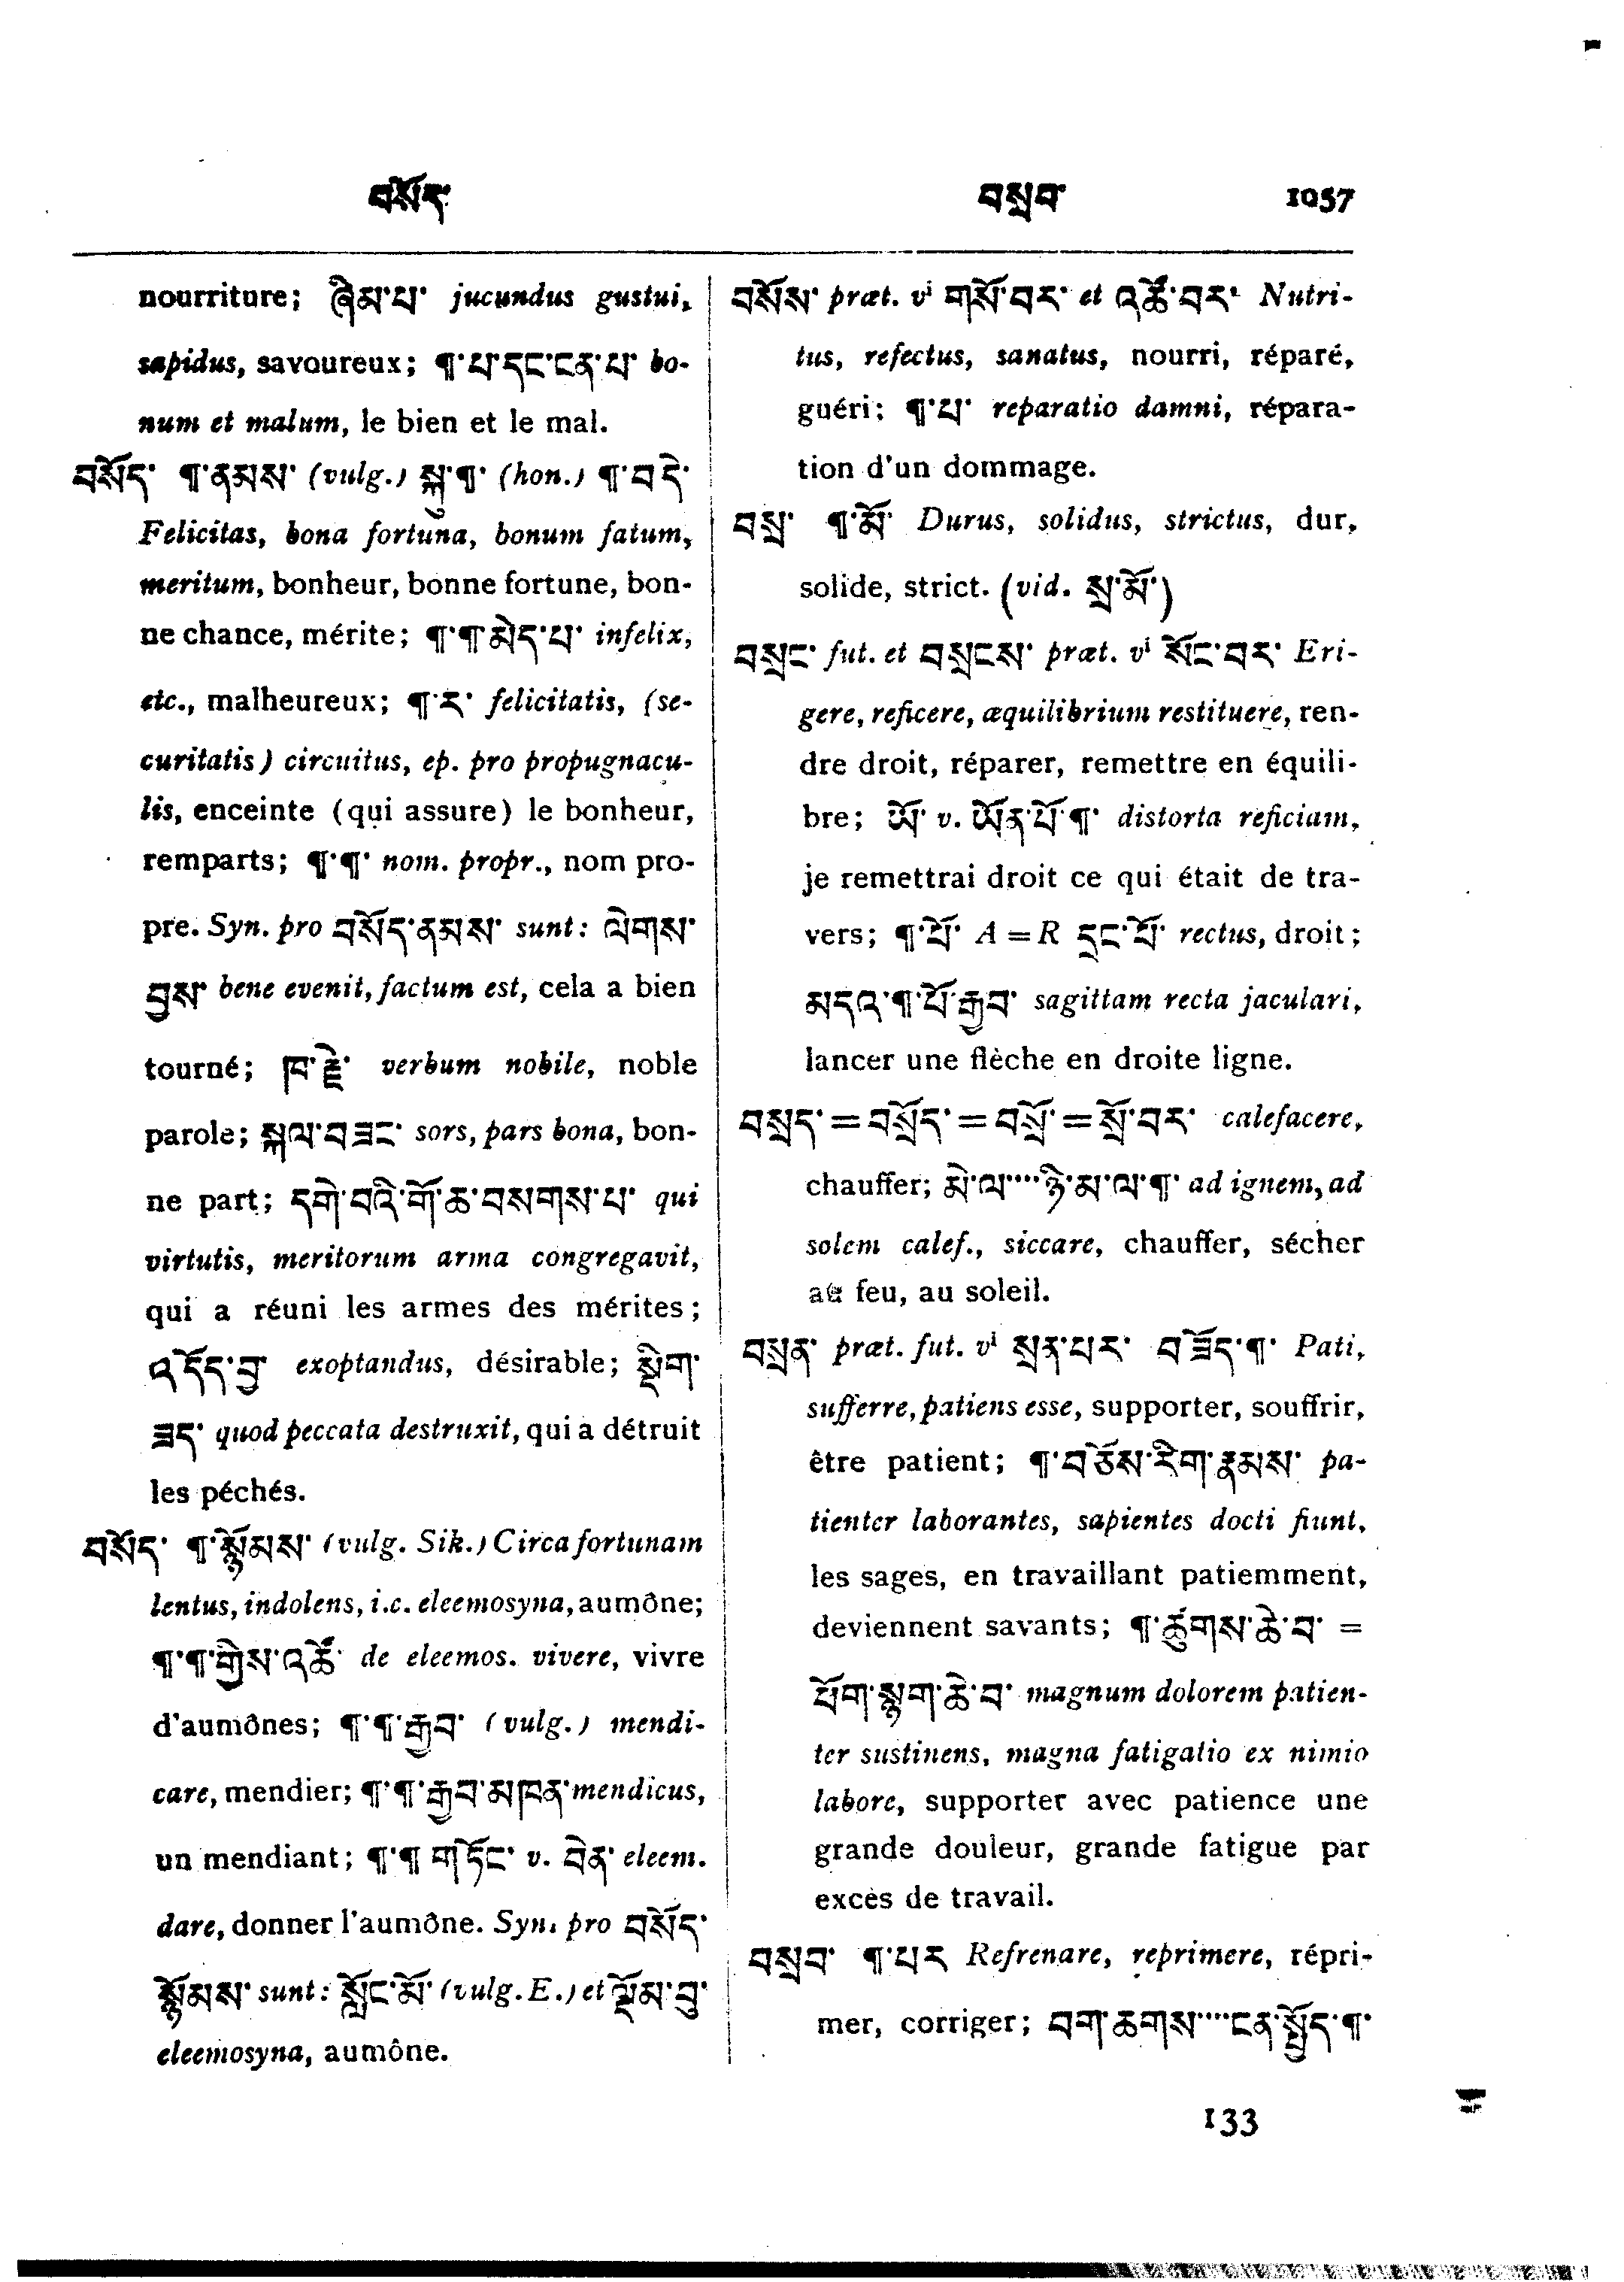 བསོད་ བསྲབ་ 1057
nourriture; ཞིམ་པ་ jucundus gustui,
sapidus, savoureux; ¶་པ་དང་ངན་པ་ bo-
num et malum, le bien et le mal.
བསོད་ ¶་ནམས་ (vulg.) སྐུ་¶་ (hon.) ¶་བདེ་
Felicitas, bona fortuna, bonum fatum,
meritum, bonheur, bonne fortune, bon-
ne chance, mérite; ¶་¶་མེད་པ་ infelix,
etc., malheureux; ¶་ར་ felicitatis, (se-
curitatis) circuitus, ep. pro propugnacu-
lis, enceinte (qui assure) le bonheur,
remparts; ¶་¶་ nom. propr., nom pro-
pre. Syn. pro བསོད་ནམས་ sunt: ལེགས་
བྱས་ bene evenit, factum est, cela a bien
tourné; ཁ་རྗེ་ verbum nobile, noble
parole; སྐལ་བཟང་ sors, pars bona, bon-
ne part; དགེ་བའི་གོ་ཆ་བསགས་པ་ qui
virtutis, meritorum arma congregavit,
qui a réuni les armes des mérites;
འདོད་བྱ་ exoptandus, désirable; སྡིག་
ཟད་ quod peccata destruxit, qui a détruit
les péchés.
བསོད་ ¶་སྙོམས་ (vulg. Sik.) Circa fortunam
lentus, indolens, i.c. eleemosyna, aumône;
¶་¶་གྱིས་འཚོ་ de eleemos. vivere, vivre
d'aumônes; ¶་¶་རྒྱབ་ (vulg.) mendi-
care, mendier; ¶་¶་རྒྱབ་མཁན་ mendicus,
un mendiant; ¶་¶་གཏོང་ v. བིན་ eleem.
dare, donner l'aumône. Syn. pro བསོད་
སྙོམས་ sunt: སློང་མོ་ (vulg. E.) et ལྡོམ་བུ་
eleemosyna, aumône.
བསོས་ præt. vi གསོ་བར་ et འཚོ་བར་ Nutri-
tus, refectus, sanatus, nourri, réparé,
guéri; ¶་པ་ reparatio damni, répara-
tion d'un dommage.
བསྲ་ ¶་མོ་ Durus, solidus, strictus, dur,
solide, strict. (vid. སྲ་མོ་)
བསྲང་ fut. et བསྲངས་ præt. vi སོང་བར་ Eri-
gere, reficere, æquilibrium restituere, ren-
dre droit, réparer, remettre en équili-
bre; ཡོ་ v. ཡོན་པོ་¶་ distorta reficiam,
je remettrai droit ce qui était de tra-
vers; ¶་པོ་ A = R དྲང་པོ་ rectus, droit;
མདའ་¶་པོ་རྒྱབ་ sagittam recta jaculari,
lancer une flèche en droite ligne.
བསྲད་ = བསྲོད་ = བསྲོ་ = སྲོ་བར་ calefacere,
chauffer; མེ་ལ་···ཉི་མ་ལ་¶་ ad ignem, ad
solem calef., siccare, chauffer, sécher
au feu, au soleil.
བསྲན་ præt. fut. vi སྲན་པར་ བཟོད་¶་ Pati,
sufferre, patiens esse, supporter, souffrir,
être patient; ¶་བཅོས་རིག་རྣམས་ pa-
tienter laborantes, sapientes docti fiunt,
les sages, en travaillant patiemment,
deviennent savants; ¶་ཚུགས་ཆེ་བ་ =
པོག་སྙག་ཆེ་བ་ magnum dolorem patien-
ter sustinens, magna fatigatio ex nimio
labore, supporter avec patience une
grande douleur, grande fatigue par
excès de travail.
བསྲབ་ ¶་པར Refrenare, reprimere, répri-
mer, corriger; བག་ཆགས་···ངན་སྤྱོད་¶་
133